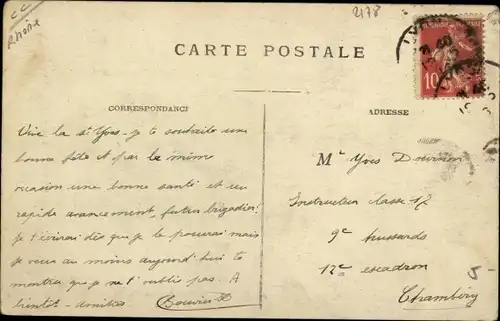 CC
Rhône
2178
CARTE POSTALE
LYON
10
CORRESPONDANCE
ADRESSE
Vive la St Yves. je te souhaite une
bonne fête et par la même
occasion une bonne santé et un
rapide avancement futur brigadier!
Je t'écrirai dès que je le pourrai mais
je veux au moins aujourd'hui te
montrer que je ne t'oublie pas. A
bientôt - amitiés Bouvier
Mr Yves
Instructeur classe 17
9e hussards
12e escadron
Chambéry
5